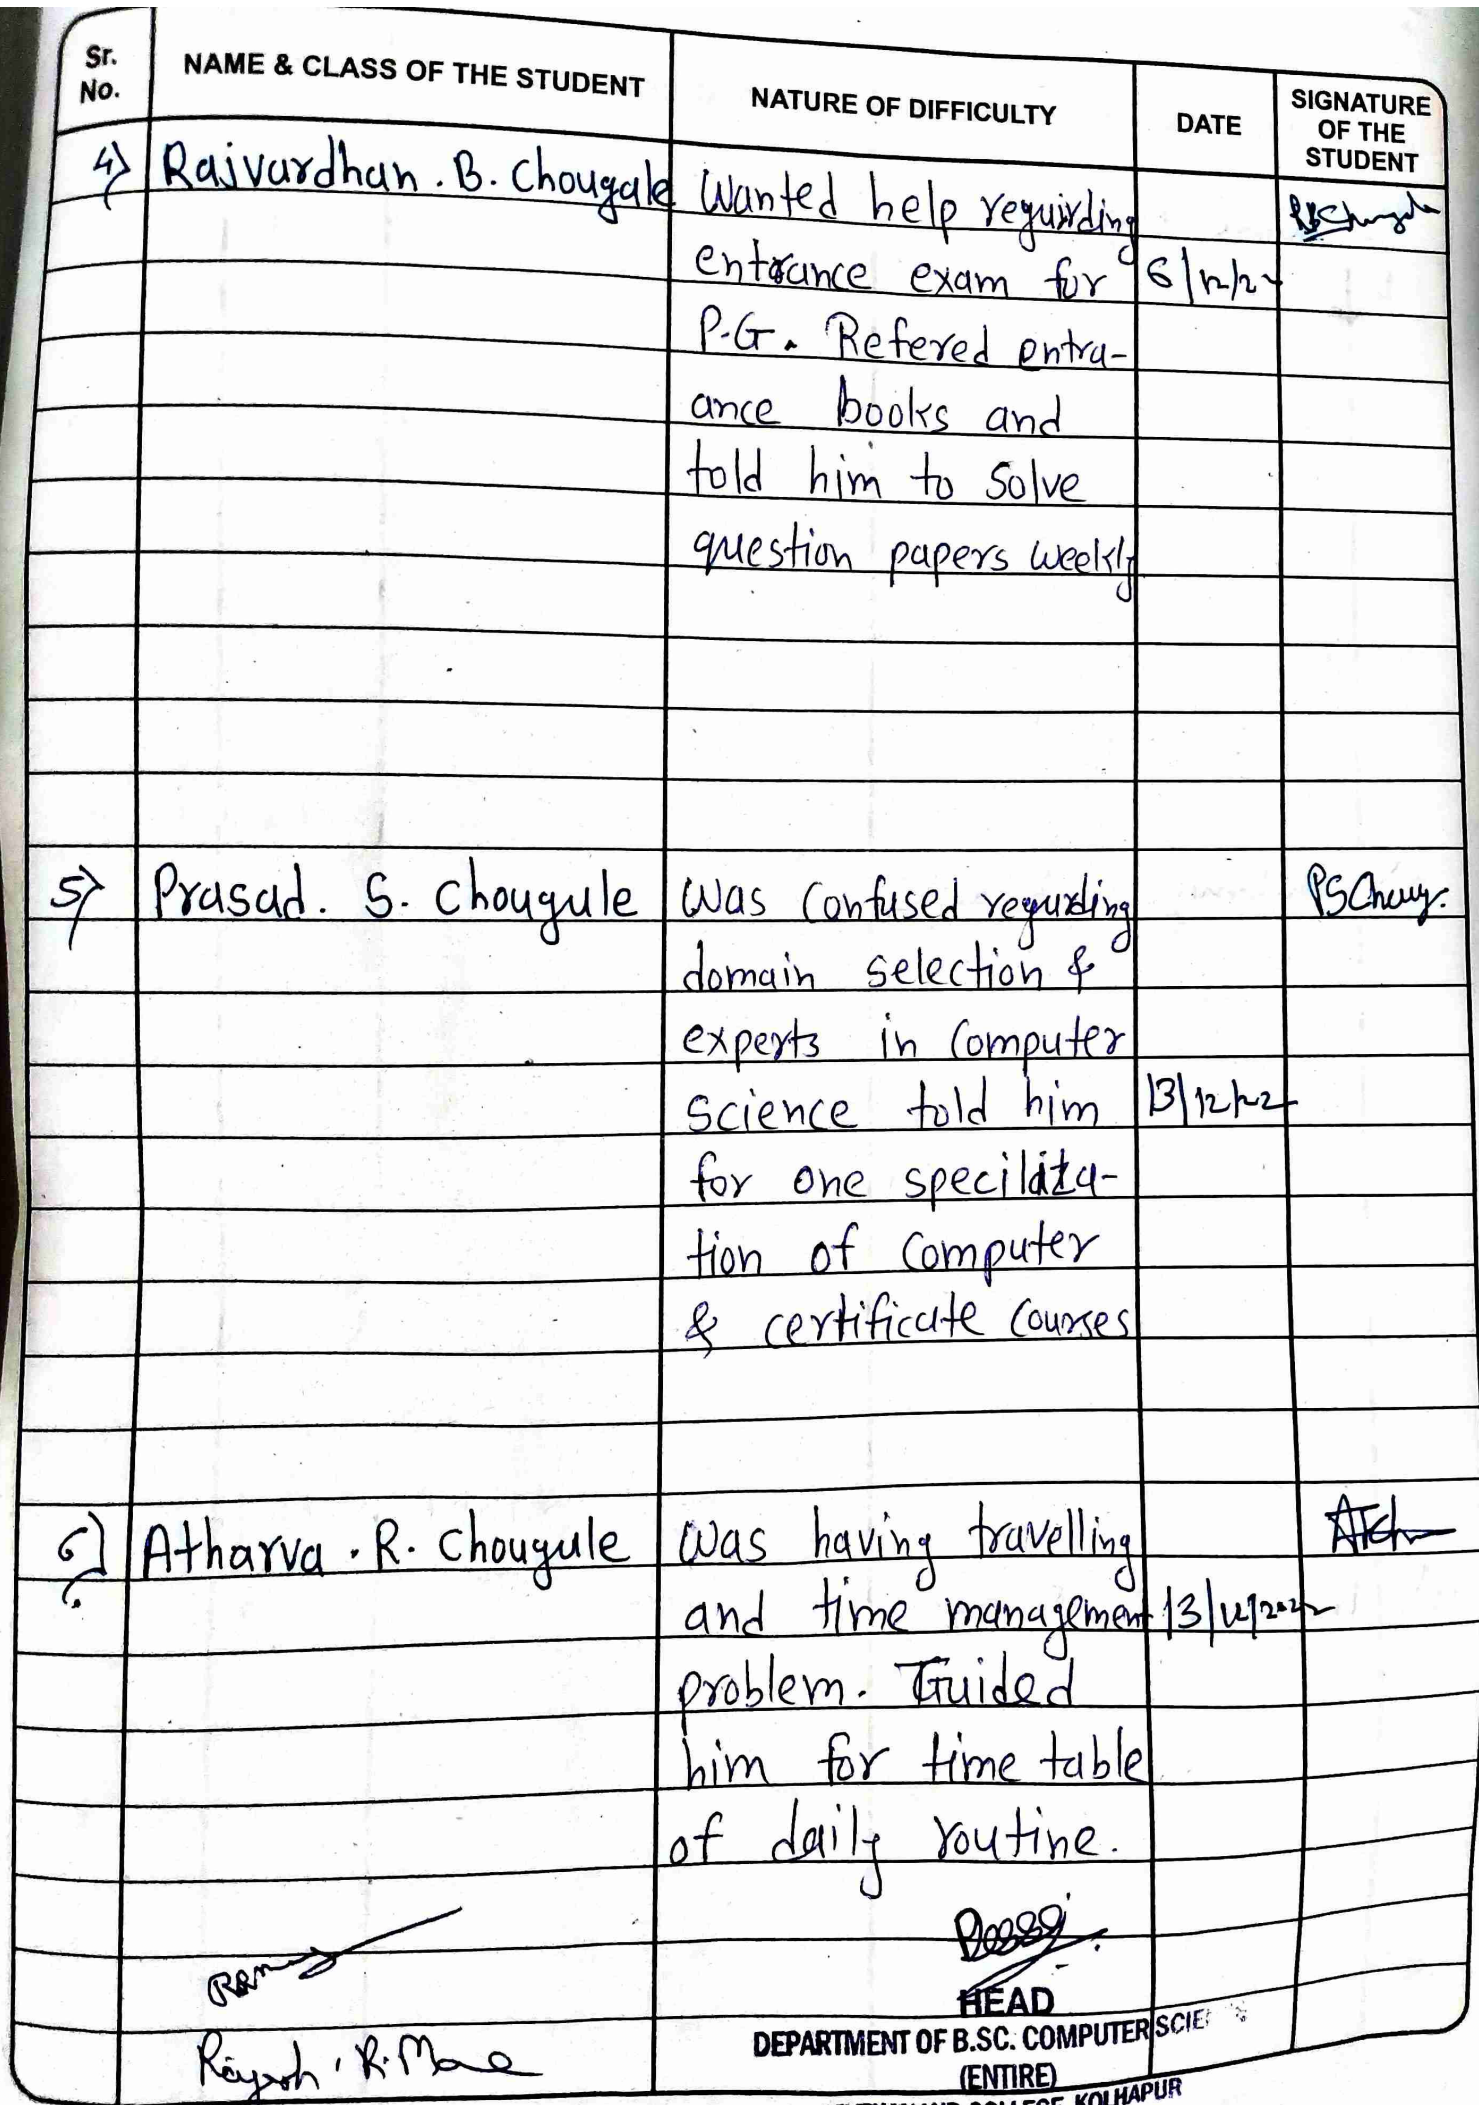 Sr. No. NAME & CLASS OF THE STUDENT NATURE OF DIFFICULTY DATE SIGNATURE OF THE STUDENT
4) Rajvardhan . B. Chougale Wanted help reguirding
entrance exam for 6/12/22
P.G. Refered entra-
ance books and
told him to Solve
question papers weekly
5) Prasad. S. Chougule Was Confused regurding PSChoug.
domain selection &
experts in Computer
Science told him 13/12/22
for one speciliza-
tion of Computer
& certificate Courses
6) Atharva . R. Chougule Was having travelling
and time management 13/12/2022
problem. Guided
him for time table
of daily routine.
HEAD
DEPARTMENT OF B.SC. COMPUTER SCIE
(ENTIRE)
COLLEGE, KOLHAPUR